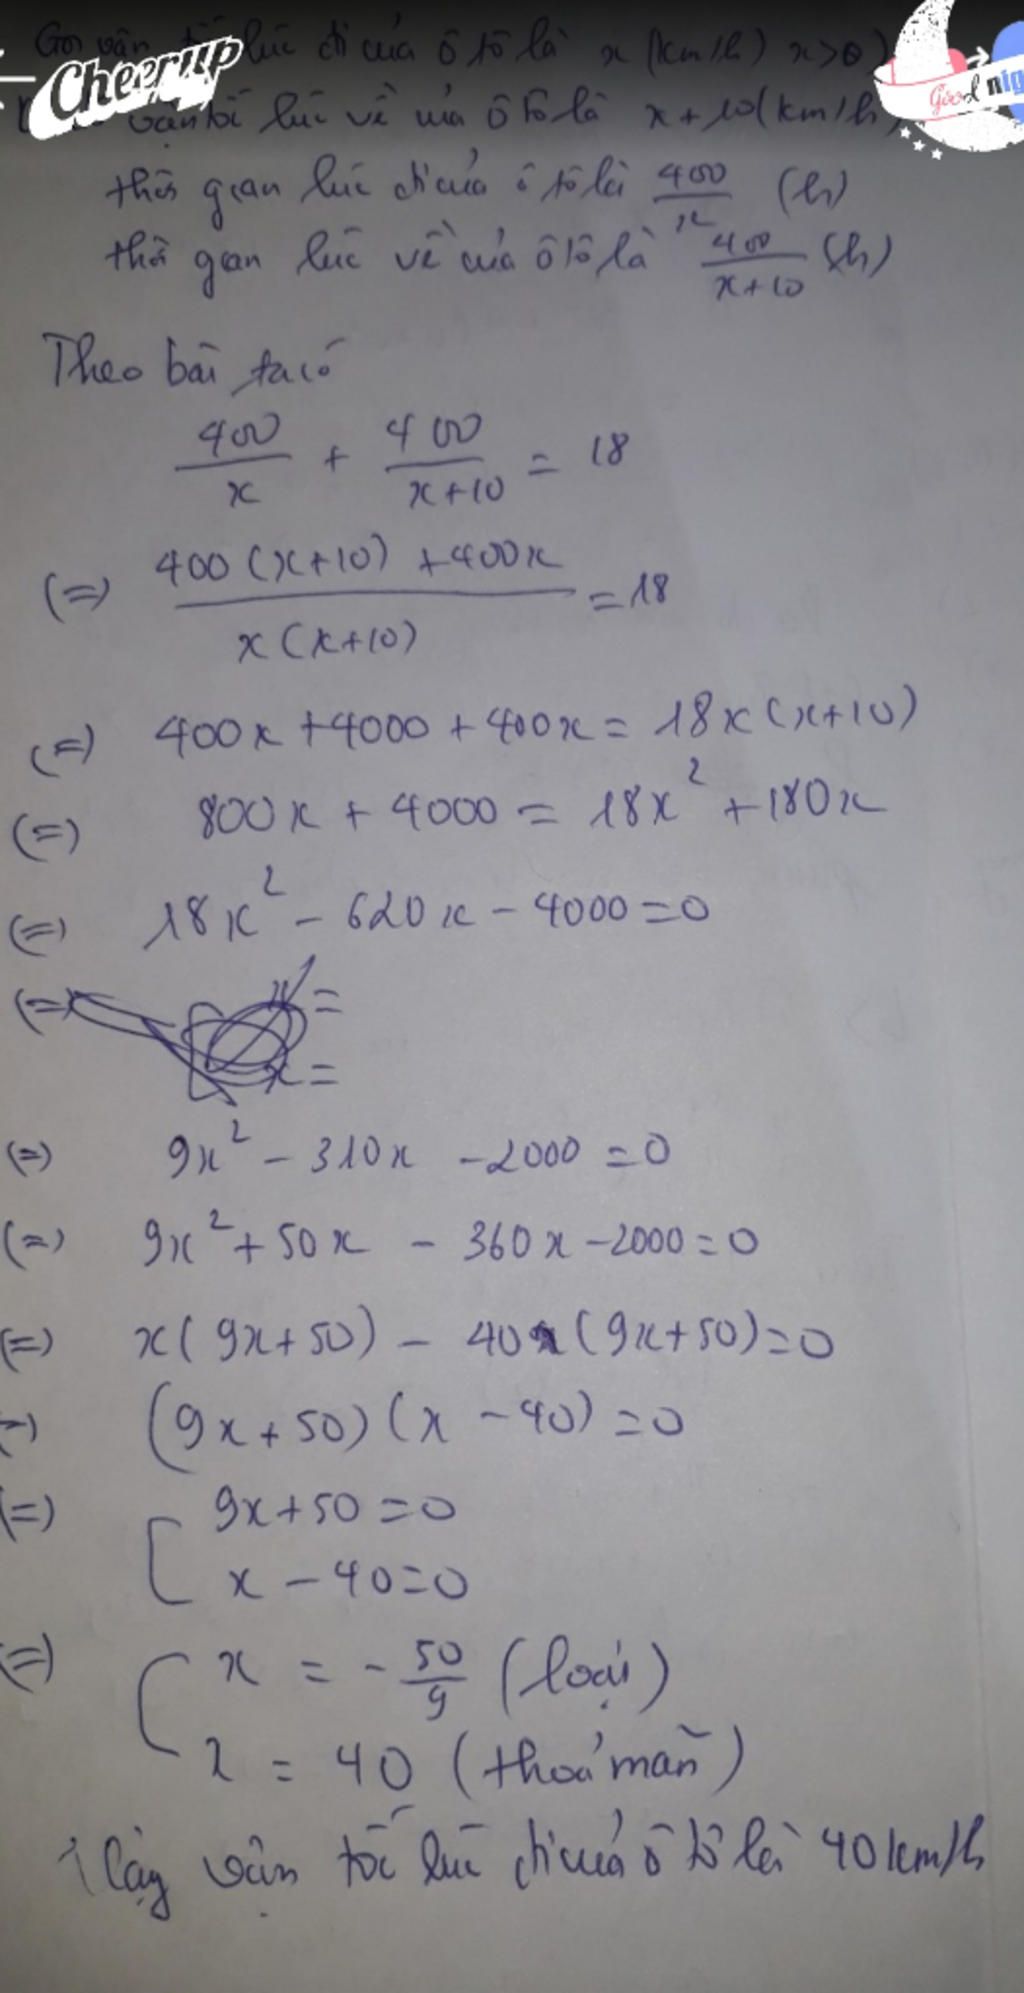 Gọi vận tốc lúc đi của ô tô là x (km/h) x>0)
Cheerup
Good nig
vận tốc lúc về của ô tô là x + 10 (km/h)
thời gian lúc đi của ô tô là 400/x (h)
thời gian lúc về của ô tô là 400/x+10 (h)
Theo bài ta có
400/x + 400/x+10 = 18
(=) 400(x+10) +400x / x(x+10) = 18
(=) 400x +4000 + 400x = 18x(x+10)
(=) 800x + 4000 = 18x² +180x
(=) 18x² - 620x - 4000 = 0
(=) x =
x =
(=) 9x² - 310x - 2000 = 0
(=) 9x² + 50x - 360x - 2000 = 0
(=) x(9x+50) - 40(9x+50) = 0
(=) (9x+50)(x - 40) = 0
(=) [ 9x+50 = 0
x - 40 = 0
(=) [ x = - 50/9 (loại)
x = 40 (thoả mãn)
Vậy vận tốc lúc đi của ô tô là 40 km/h